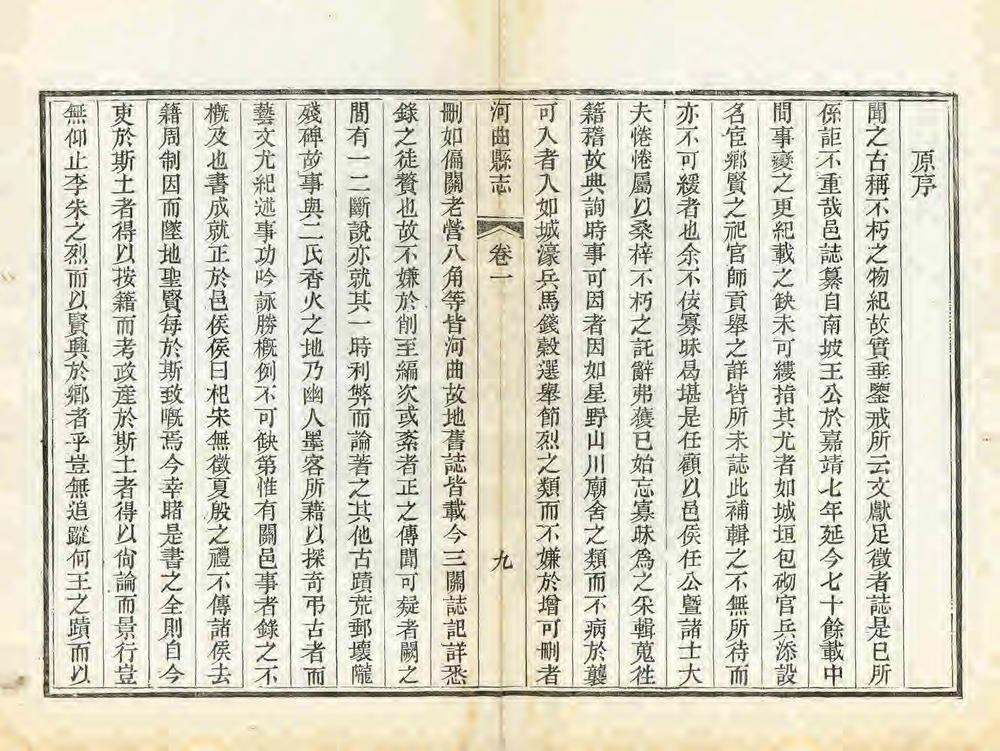 原序
聞之古稱不朽之物紀故實垂鑒戒所云文獻足徵者誌是已所
係詎不重哉邑誌纂自南坡王公於嘉靖七年延今七十餘載中
間事變之更紀載之缺未可縷指其尤者如城垣包砌官兵添設
名宦鄉賢之祀官師貢舉之詳皆所未誌此補輯之不無所待而
亦不可緩者也余不佞寡昧曷堪是任顧以邑侯任公暨諸士大
夫惓惓屬以桑梓不朽之託辭弗獲已始忘寡昧為之采輯蒐徃
籍稽故典詢時事可因者因如星野山川廟舍之類而不病於襲
可入者入如城濠兵馬錢穀選舉節烈之類而不嫌於增可刪者
河曲縣志 卷一 九
刪如偏關老營八角等皆河曲故地舊誌皆載今三關誌記詳悉
錄之徒贅也故不嫌於削至編次或紊者正之傳聞可疑者闕之
間有一二斷說亦就其一時利弊而論著之其他古蹟荒郵壞隴
殘碑故事與二氏香火之地乃幽人墨客所藉以探奇弔古者而
藝文尤紀述事功吟詠勝概例不可缺第惟有關邑事者錄之不
概及也書成就正於邑侯侯曰杞宋無徵夏殷之禮不傳諸侯去
籍周制因而墜地聖賢每於斯致嘅焉今幸睹是書之全則自今
吏於斯土者得以按籍而考政產於斯土者得以尚論而景行豈
無仰止李朱之烈而以賢興於鄉者乎豈無追蹤何王之蹟而以